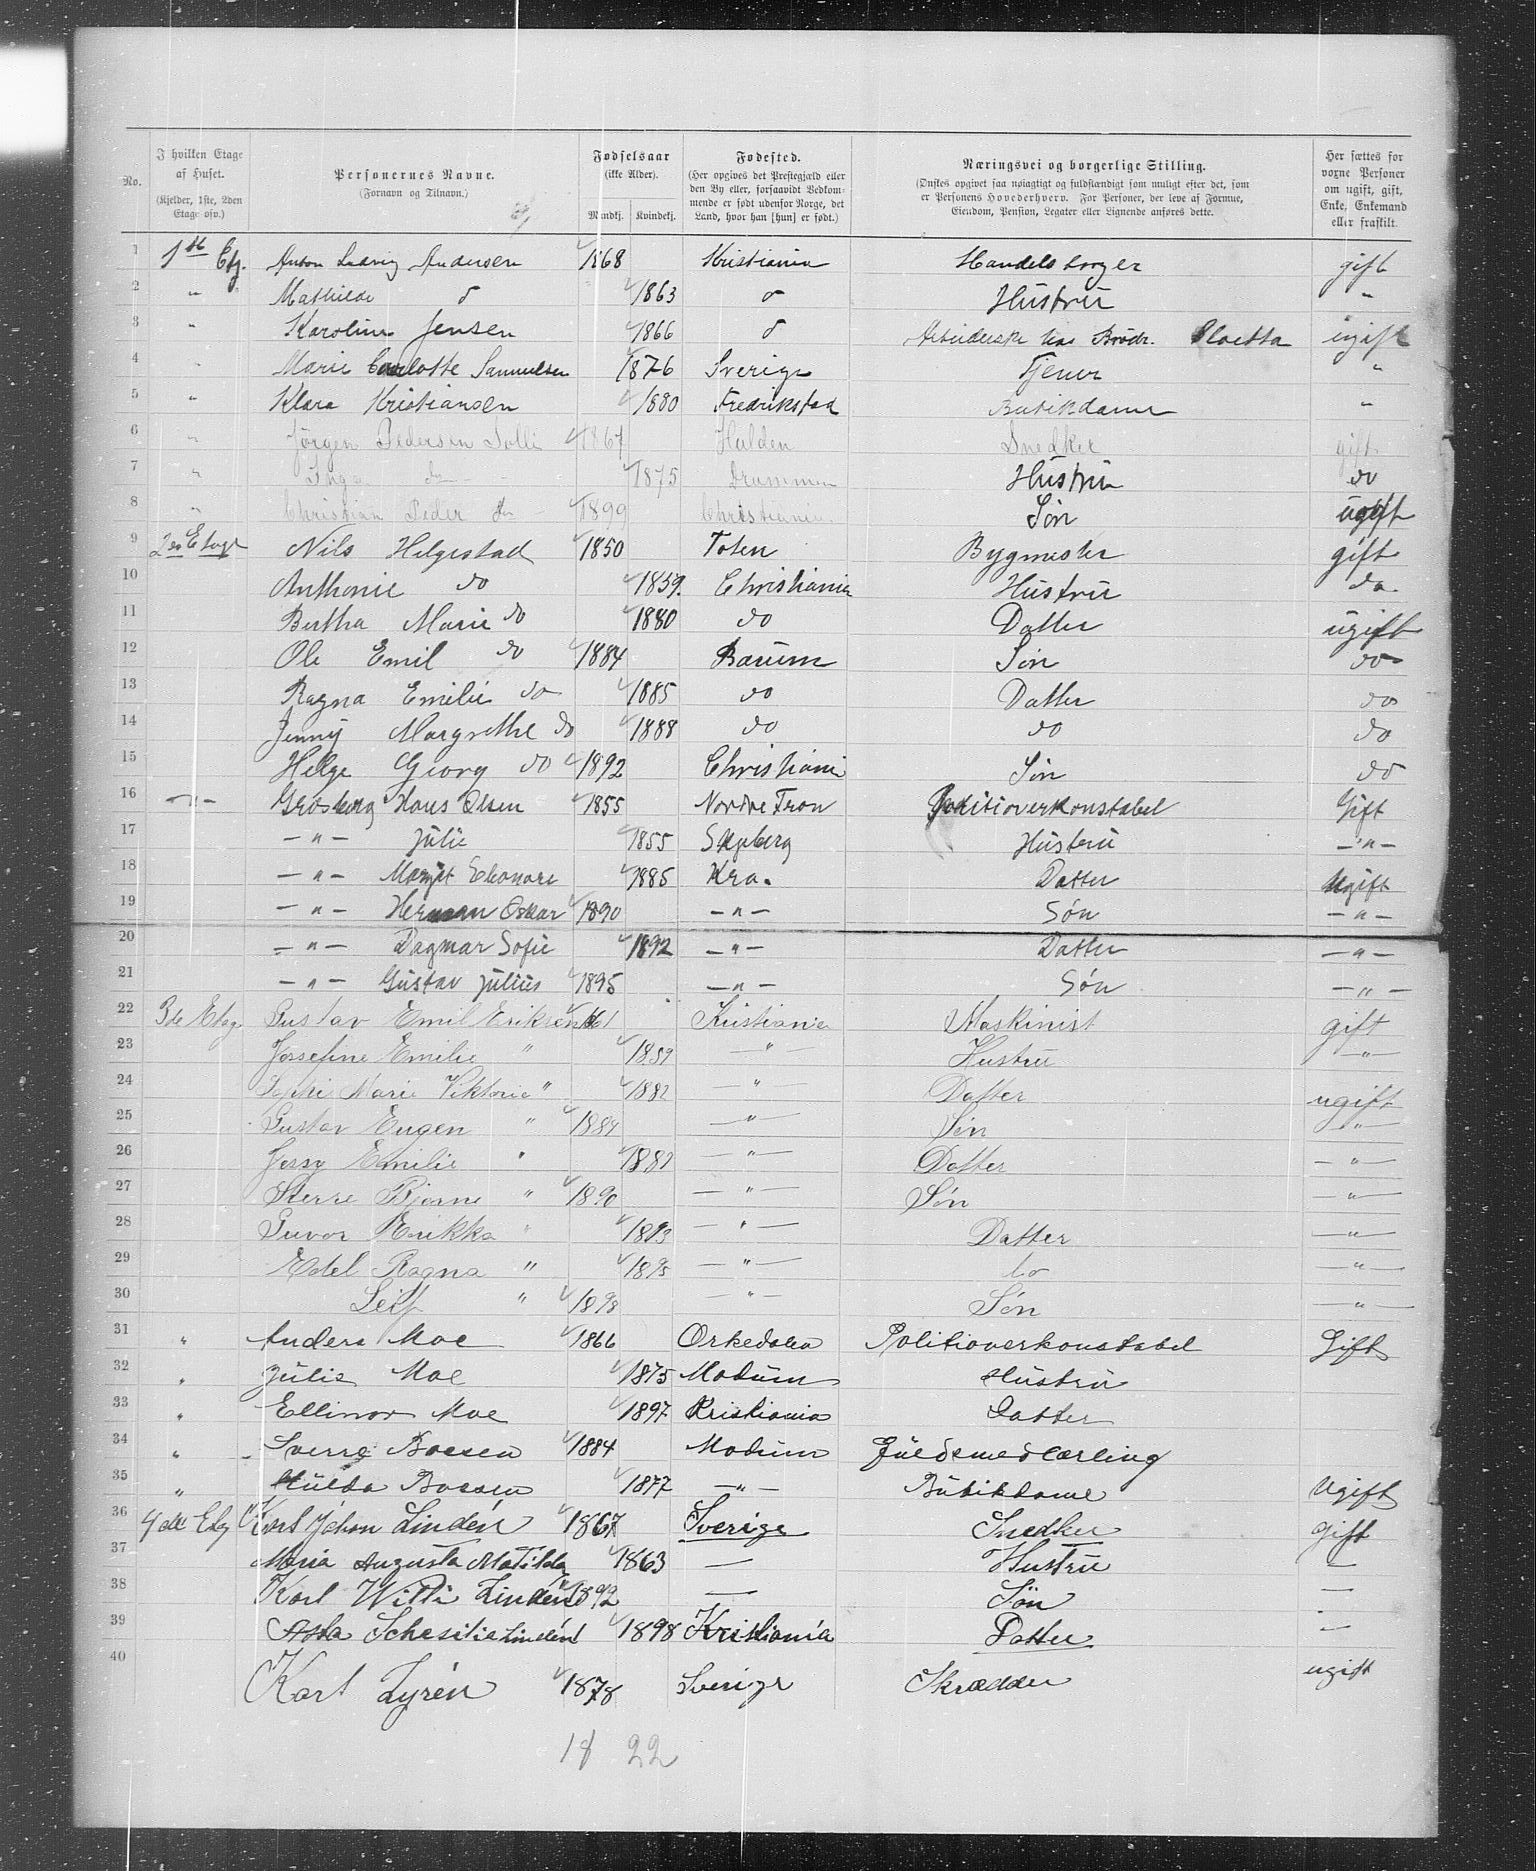 No. | I hvilken Etage af Huset. (Kjelder, 1ste, 2den Etage osv.) | Personernes Navne. (Fornavn og Tilnavn.) | Fødselsaar (ikke Alder). Mandkj. Kvindekj. | Fødested. (Her opgives det Prestegjæld eller den By eller, forsaavidt Vedkommende er født udenfor Norge, det Land, hvor han [hun] er født.) | Næringsvei og borgerlige Stilling. (Ønskes opgivet saa nøiagtigt og fuldstændigt som muligt efter det, som er Personens Hovederhverv. For Personer, der leve af Formue, Eiendom, Pension, Legater eller Lignende anføres dette. | Her sættes for voxne Personer om ugift, gift, Enke, Enkemand eller fraskilt.
1 1ste Etg. Anton Ludvig Andersen 1868 Kristiania Handelsborger gift
2 " Mathilde d 1863 d Hustru "
3 " Karoline Jensen 1866 d Arbeiderske hos Brødr. Kloetta ugift
4 " Marie Carlotte Samuelsen 1876 Sverige Tjener "
5 " Klara Kristiansen 1880 Fredrikstad Butikdame "
6 " Jørgen Pedersen Solli 1867 Halden Snedker gift
7 " Inga do 1875 Drammen Hustru do
8 " Christian Peder do 1899 Christiania Søn ugift
9 2den Etage Nils Helgestad 1850 Toten Bygmester gift
10 Anthonie do 1859. Christiania Hustru do
11 Bertha Marie do 1880 do Datter ugift
12 Ole Emil do 1884 Bærum Søn do
13 Ragna Emilie do 1885 do Datter do
14 Jenny Margrethe do 1888 do do do
15 Helge Georg do 1892 Christiania Søn do
16 -"- Grøsberg Hans Olsen 1855 Nordre Fron Politioverkonstabel Gift
17 -"- Julie 1855 Skjeberg Hustru -"-
18 -"- Margit Eleonore 1885 Kra. Datter Ugift
19 -"- Herman Oskar 1890 -"- Søn -"-
20 -"- Dagmar Sofie 1892 -"- Datter -"-
21 -"- Gustav Julius 1895 -"- Søn -"-
22 3de Etag Gustav Emil Eriksen 61 Kristiania Maskinist gift
23 Josefine Emilie " 1859 -"- Hustru -"-
24 Marie Viktoria " 1882 " Datter ugift
25 Gustav Eugen " 1884 -"- Søn -"-
26 Jessy Emilie " 1882 -"- Datter -"-
27 Bjarne " 1890 -"- Søn -"-
28 Erikka " 1893 -"- Datter -"-
29 Edel Ragna " 1895 -"- do -"-
30 Leif " 1898 -"- Søn -"-
31 " Anders Moe 1866 Orkedalen Politioverkonstabel Gift
32 " Julie Moe 1875 Modum Hustru
33 " Ellinor Moe 1897 Kristiania Datter
34 " Sverre Boesen 1884 Modum Guldsmedlærling
35 " Hulda Boesen 1877 -"- Butikdame Ugift
36 4de Etg Karl Johan Lindén 1867 Sverige Snedker Gift
37 Maria Augusta Matilda 1863 — Hustru —
38 Karl Willi Lindén 1892 — Søn —
39 Asta Lindén 1898 Kristiania Datter —
40 Karl Lyrén 1878 Sverige Skrædder ugift
18 22